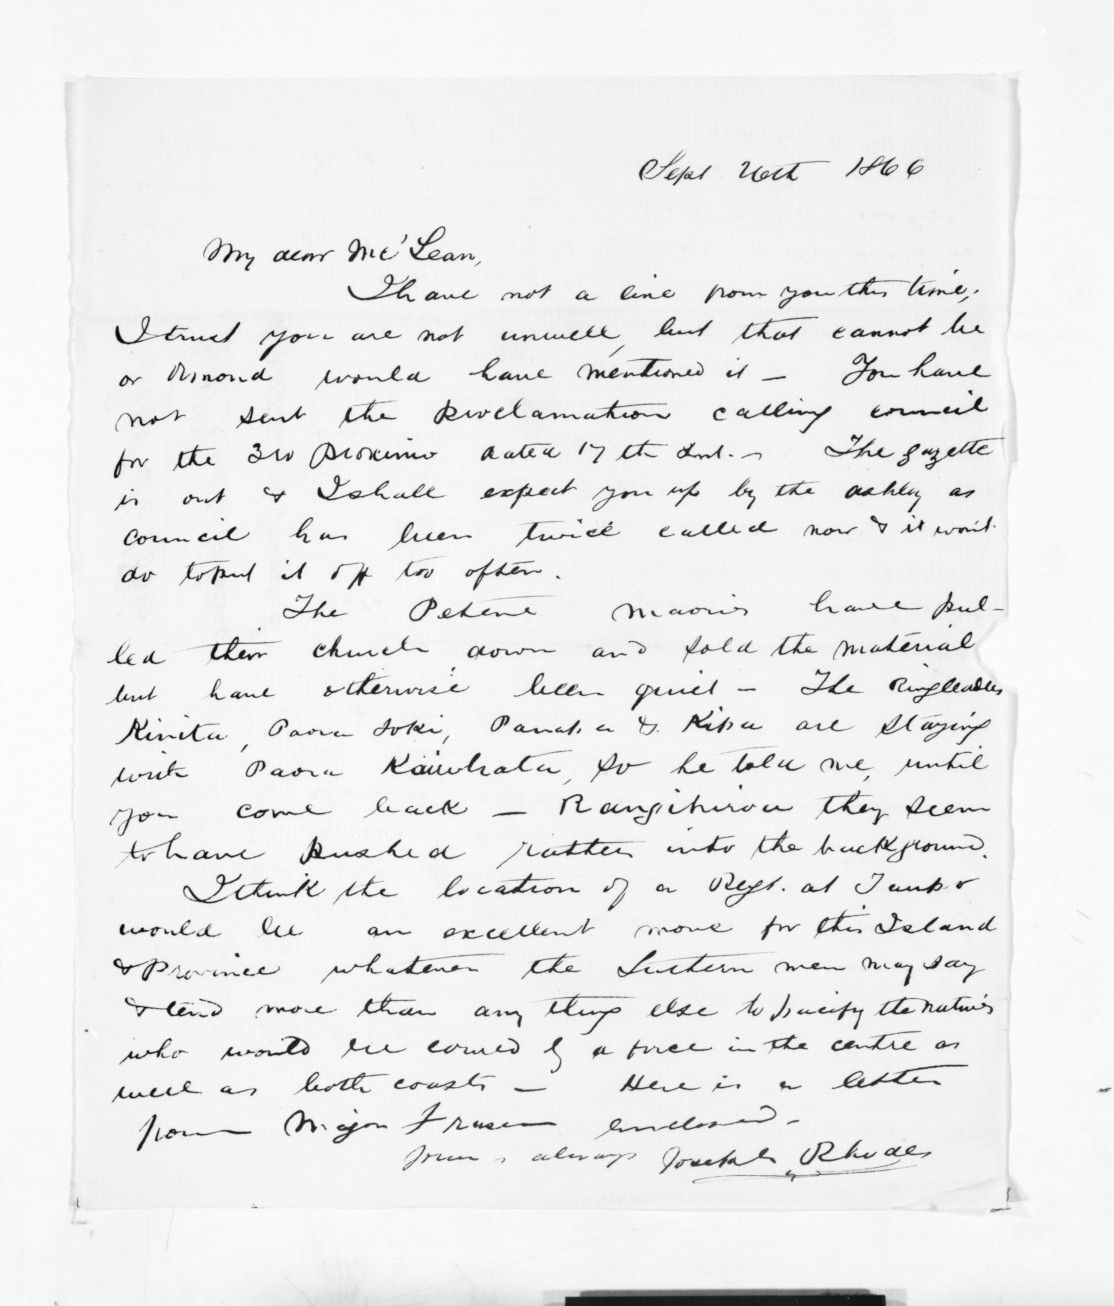 Sept 26th 1866
My dear Mc'Lean,
I have not a line from you this time,
I trust you are not unwell, but that cannot be
or Ormond would have mentioned it — You have
not sent the proclamation calling council
for the 3rd Proximo dated 17th Inst. — The gazette
is out & I shall expect you up by the Ashley as
council has been twice called now & it won't
do to put it off too often.
The Petane maories have pul-
led their church down and sold the material
but have otherwise been quiet — The Ringleaders
Kinita, Paora Toki, Panapa & Kipa are staying
with Paora Kaiwhata, so he told me, until
you come back — Rangihiroa they seem
to have pushed rather into the background.
I think the location of a Regt. at Taupo
would be an excellent move for this Island
& Province whatever the Southern men may say
& tend more than any thing else to pacify the natives
who would be cowed by a force in the centre as
well as both coasts — Here is a letter
from Major Fraser enclosed —
Yours always Joseph Rhodes